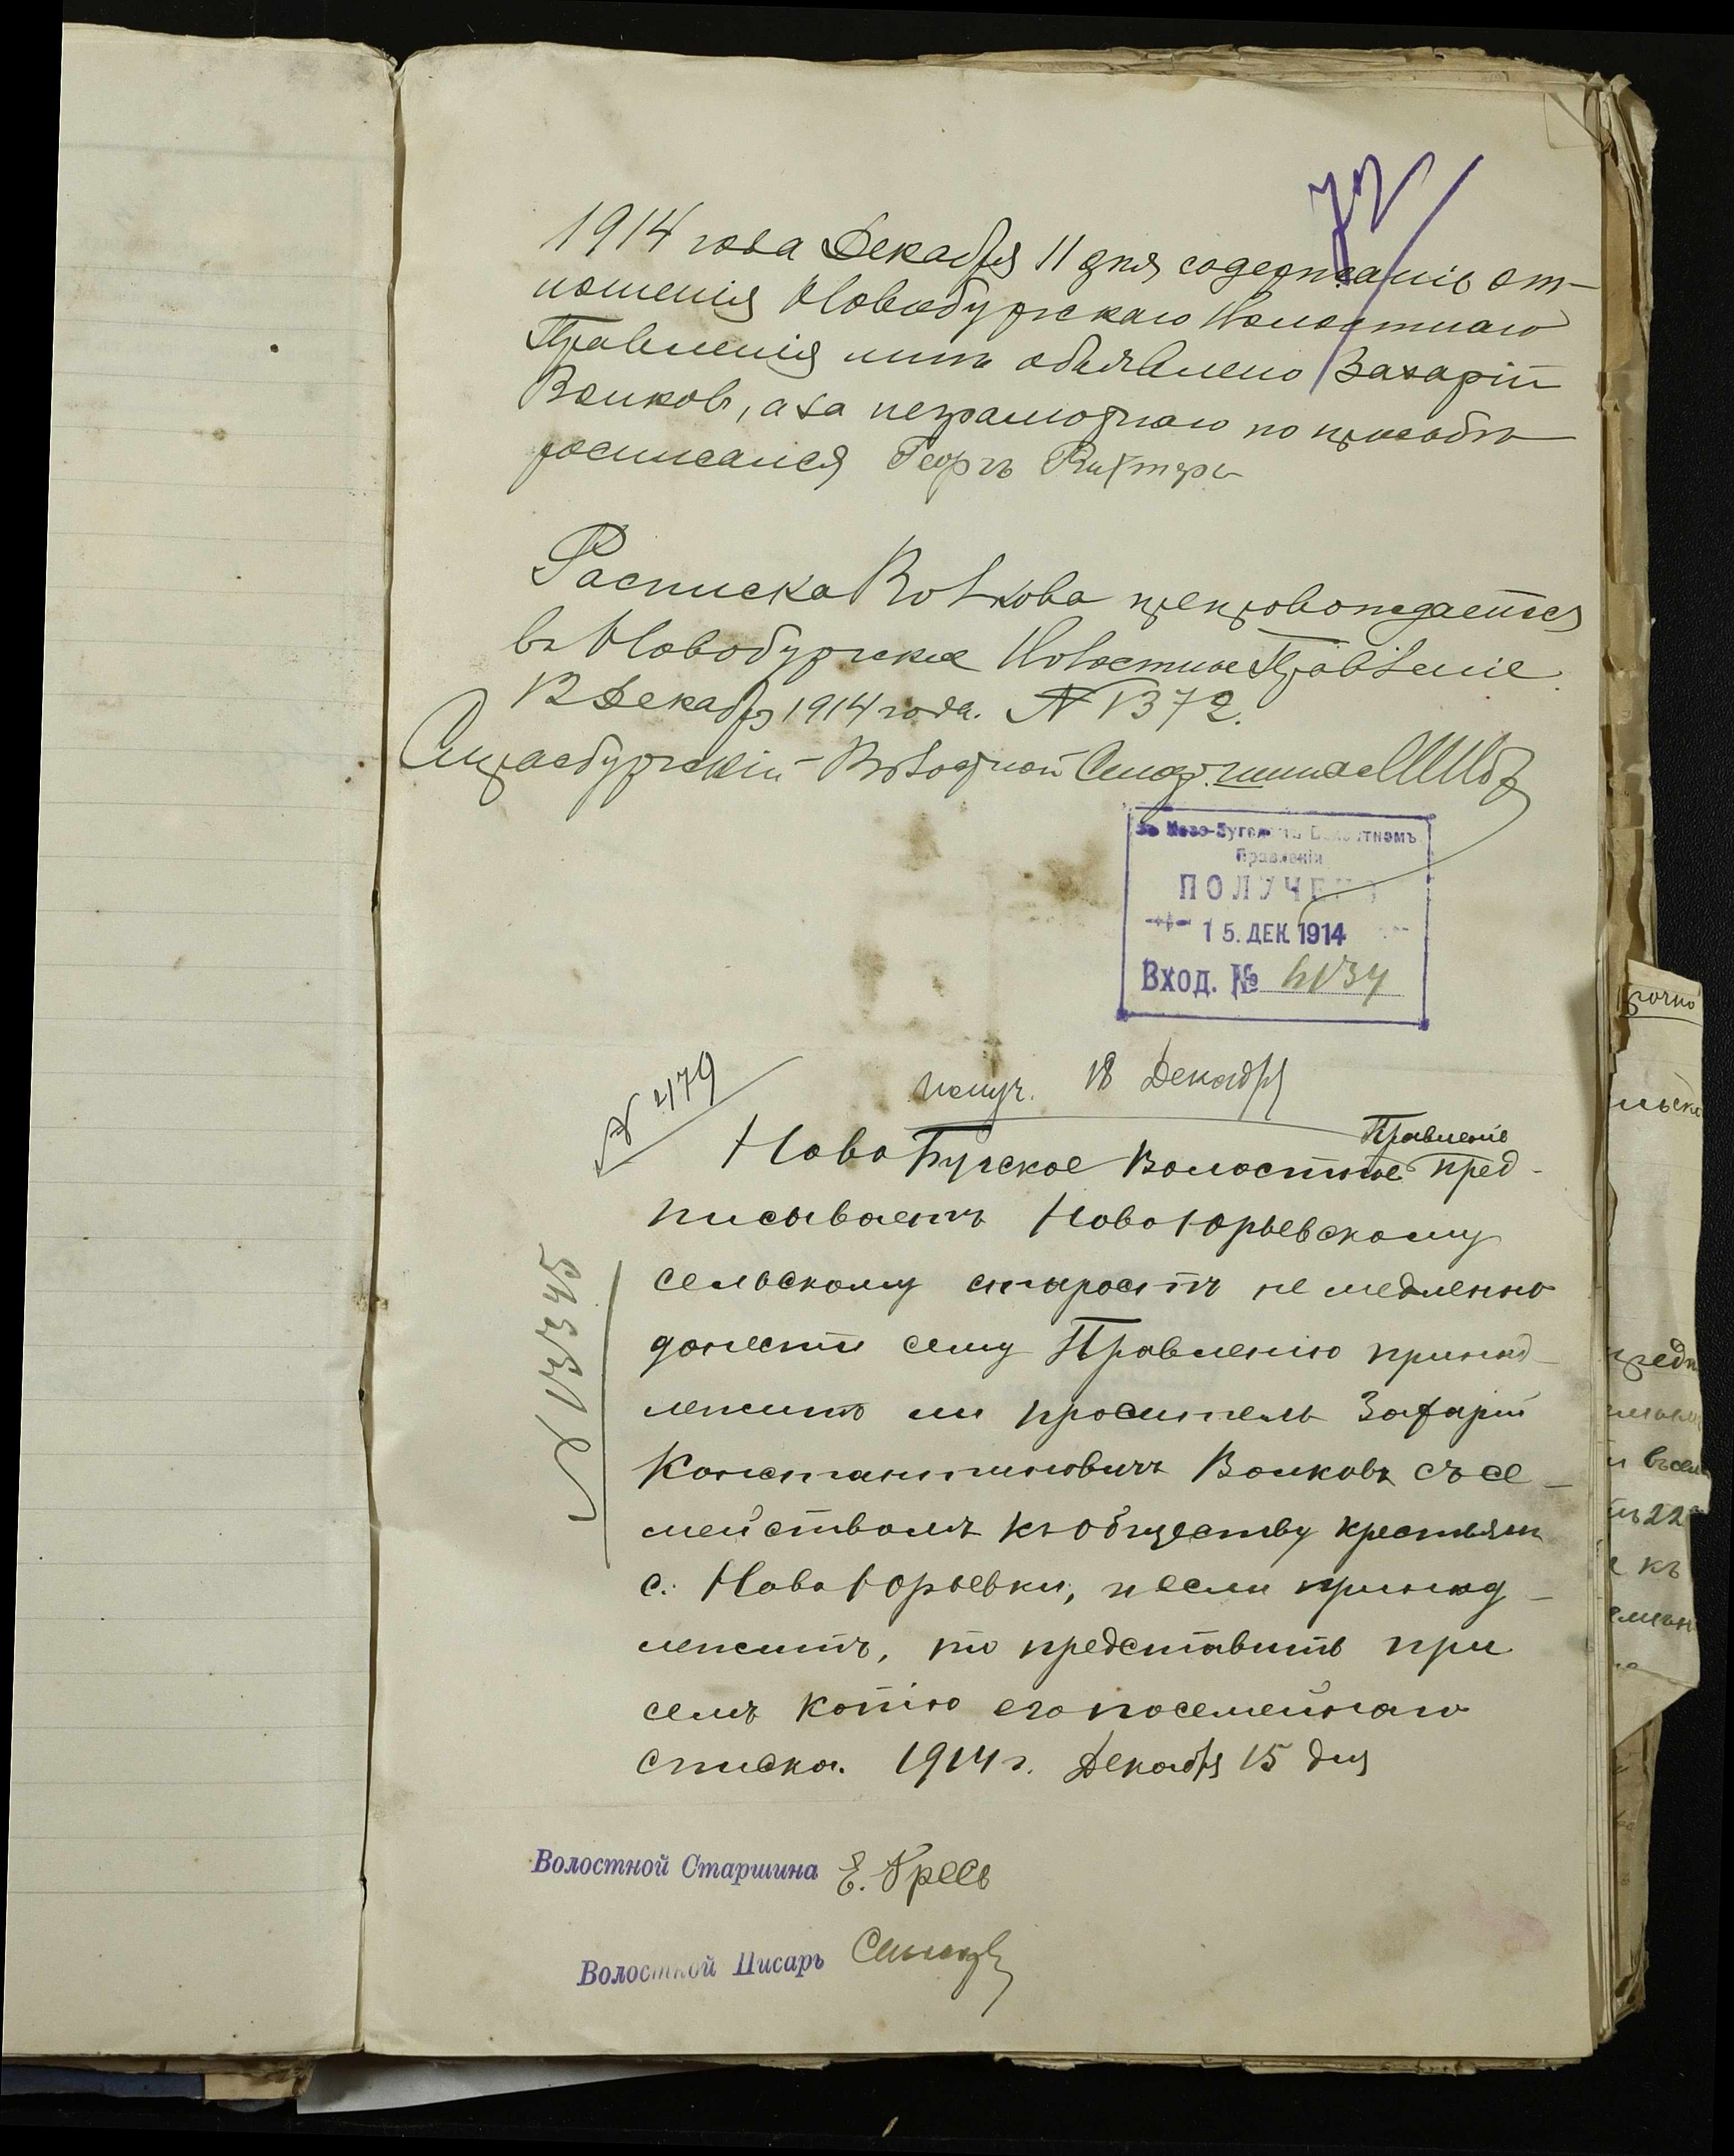 72
1914 года Декабря 11 дня содержаніе от-
ношенія Новобургскаго Волостнаго
Правленія мнѣ объявлено Захарій
Волковъ, а за неграмотнаго по просьбѣ
росписался Георгъ Рихтеръ
Расписка Волкова препровождается
въ Новобургское Волостное Правленіе
12 Декабря 1914 года. N 1372.
Страсбургскій Волостной Старшина
Волостномъ
Правленіи
ПОЛУЧЕНО
15. ДЕК. 1914
Вход. №
N 2179
получ. 18 Декабря
Правленіе
Ново Бугское Волостное пред-
писываетъ Ново Юрьевскому
сельскому старостѣ не медленно
N 13345
донести сему Правленію принад-
лежитъ ли проситель Захарій
Константиновичъ Волковъ съ се-
мействомъ къ обществу крестьянъ
с. Ново Юрьевки, и если принад-
лежитъ, то представить при
семъ копію его посемейнаго
списка. 1914 г. Декабря 15 дня
Волостной Старшина Е. Кресъ
Волостной Писарь
рочно
въсем
22
къ